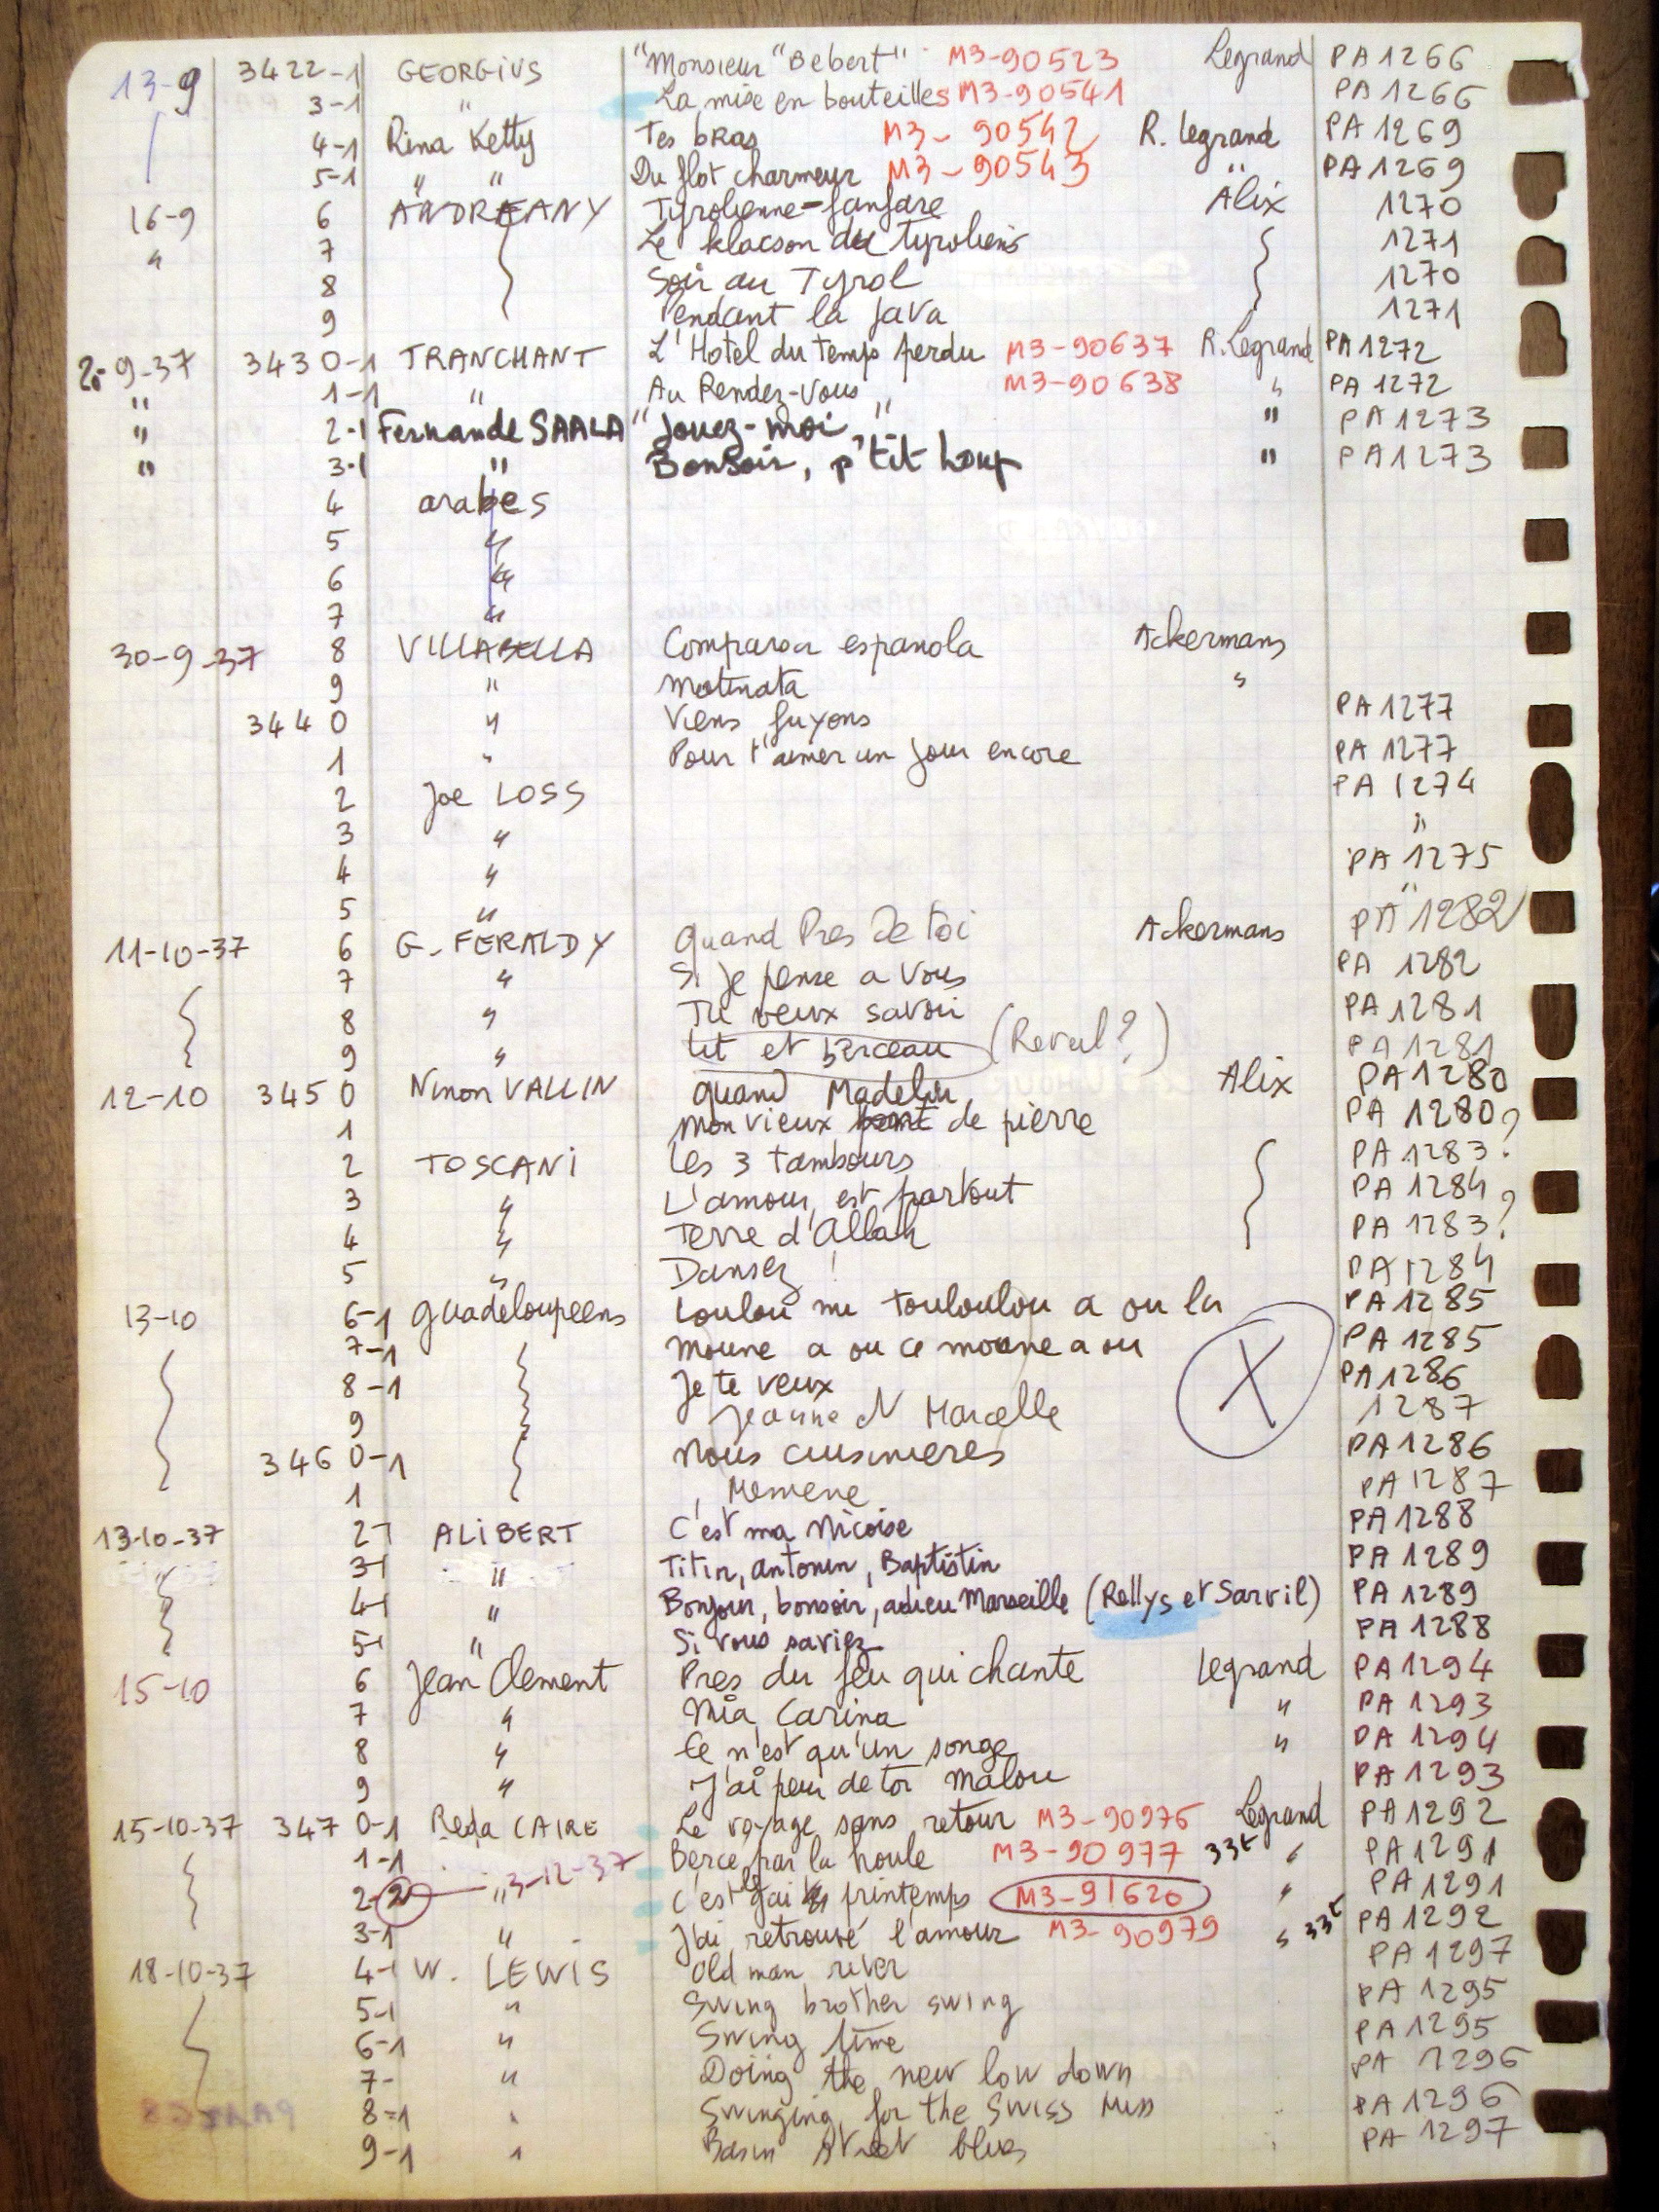 13-9 3422-1 GEORGIUS "Monsieur "Bebert" M3-90523 Legrand PA 1266
3-1 " La mise en bouteilles M3-90541 PA 1266
4-1 Rina Ketty Tes bras M3-90542 R. Legrand PA 1269
5-1 " " Du flot charmeur M3-90543 " PA 1269
16-9 6 ANDREANY Tyrolienne-fanfare Alix 1270
" 7 Le klacson du tyroliens 1271
8 Soir au Tyrol 1270
9 Pendant la Java 1271
2.-9-37 3430-1 TRANCHANT L'Hotel du temps perdu M3-90637 R. Legrand PA 1272
" 1-1 " Au Rendez-vous M3-90638 " PA 1272
" 2-1 Fernande SAALA "Jouez-moi" " PA 1273
" 3-1 " Bonsoir, p'tit loup " PA 1273
4 arabes
5 "
6 "
7 "
30-9-37 8 VILLABELLA Comparsa espanola Ackermans
9 " Matinata "
3440 " Viens fuyons PA 1277
1 " Pour t'aimer un jour encore PA 1277
2 Joe LOSS PA 1274
3 " "
4 " PA 1275
5 " "
11-10-37 6 G. FERALDY Quand Pres de toi Ackermans PA 1282
7 " Si je pense a vous PA 1282
8 " Tu veux savoir PA 1281
9 " Lit et berceau (Reval?) PA 1281
12-10 3450 Ninon VALLIN Quand Madelon Alix PA 1280
1 Mon vieux pont de pierre PA 1280?
2 TOSCANI Les 3 tambours PA 1283?
3 " L'amour est partout PA 1284
4 " Terre d'Allah PA 1283?
5 " Dansez ! PA 1284
13-10 6-1 Guadeloupeens Loulou mi touloulou a ou la PA 1285
7-1 Moune a ou ce moune a ou PA 1285
8-1 Je te veux X PA 1286
9 Jeanne N Marcelle 1287
3460-1 Nous cuisinieres PA 1286
1 Memene PA 1287
13-10-37 2-1 ALIBERT C'est ma Nicoise PA 1288
3-1 " Titin, antonin, Baptistin PA 1289
4-1 " Bonjour, bonsoir, adieu Marseille (Rellys et Sarvil) PA 1289
5-1 " Si vous saviez PA 1288
15-10 6 Jean Clement Pres du feu qui chante Legrand PA 1294
7 " Mia Carina " PA 1293
8 " Ce n'est qu'un songe " PA 1294
9 " J'ai peur de toi Malou PA 1293
15-10-37 3470-1 Reda CAIRE Le voyage sans retour M3-90976 Legrand PA 1292
1-1 Berce par la houle M3-90977 33t " PA 1291
2-2 " 3-12-37 C'est gai le printemps M3-91620 " PA 1291
3-1 " J'ai retrouvé l'amour M3-90979 " 33t PA 1292
18-10-37 4-1 W. LEWIS Old man river PA 1297
5-1 " Swing brother swing PA 1295
6-1 " Swing time PA 1295
7- " Doing the new low down PA 1296
8-1 " Swinging for the Swiss Miss PA 1296
9-1 " Basin street blues PA 1297